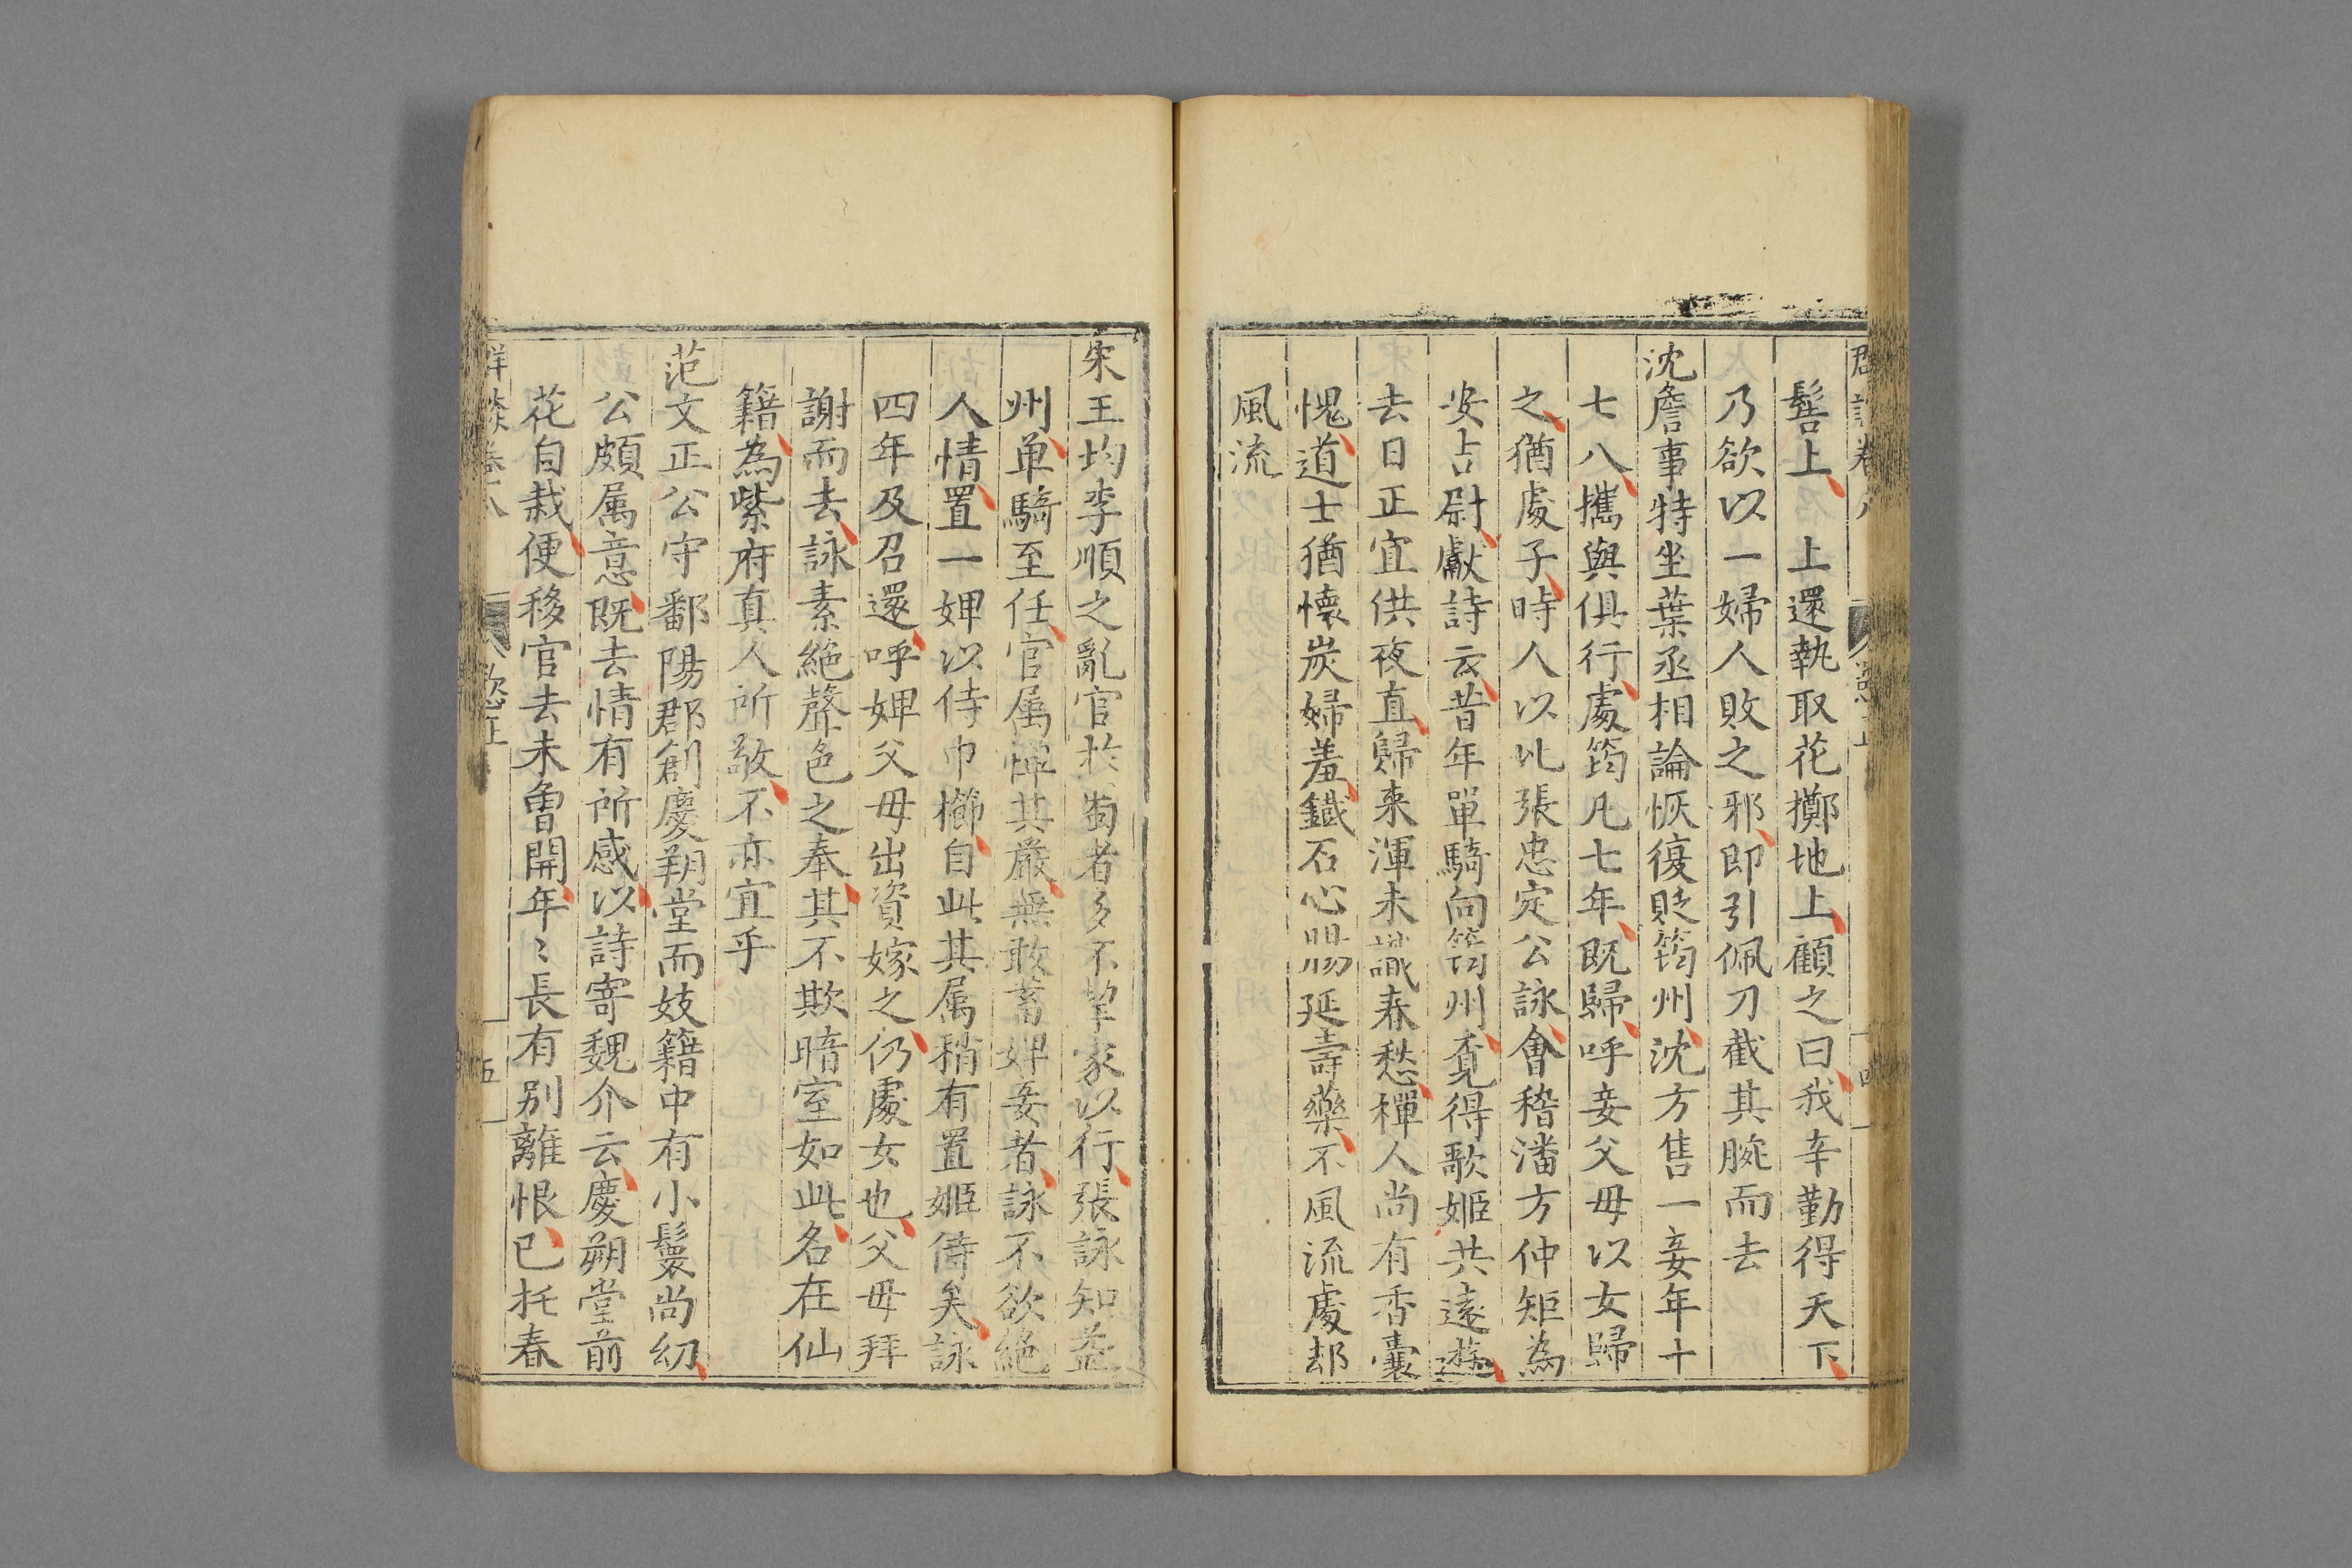 髻上上還執取花擲地上顧之曰我辛勤得天下
乃欲以一婦人敗之邪即引佩刀截其腕而去
沈詹事特坐葉丞相論恢復貶筠州沈方售一妾年十
七八攜與俱行處筠凡七年既歸呼妾父母以女歸
之猶處子時人以比張忠定公詠會稽潘方仲矩為
安吉尉獻詩云昔年單騎向筠州覓得歌姬共遠遊
去日正宜供夜直歸来渾未識春愁禪人尚有香囊
愧道士猶懷炭婦羞鐵石心腸延壽藥不風流處却
風流
宋王均李順之亂官於蜀者多不挈家以行張詠知益
州单騎至任官属憚其嚴無敢蓄婢妾者詠不欲絕
人情置一婢以侍巾櫛自此其属稍有置姬侍矣詠
四年及召還呼婢父母出資嫁之仍處女也父母拜
謝而去詠素絕聲色之奉其不欺暗室如此名在仙
籍為紫府真人所敬不亦宜乎
范文正公守鄱陽郡創慶朔堂而妓籍中有小鬟尚幼
公頗属意既去情有所感以詩寄魏介云慶朔堂前
花自栽便移官去未曾開年〻長有别離恨已托春
五